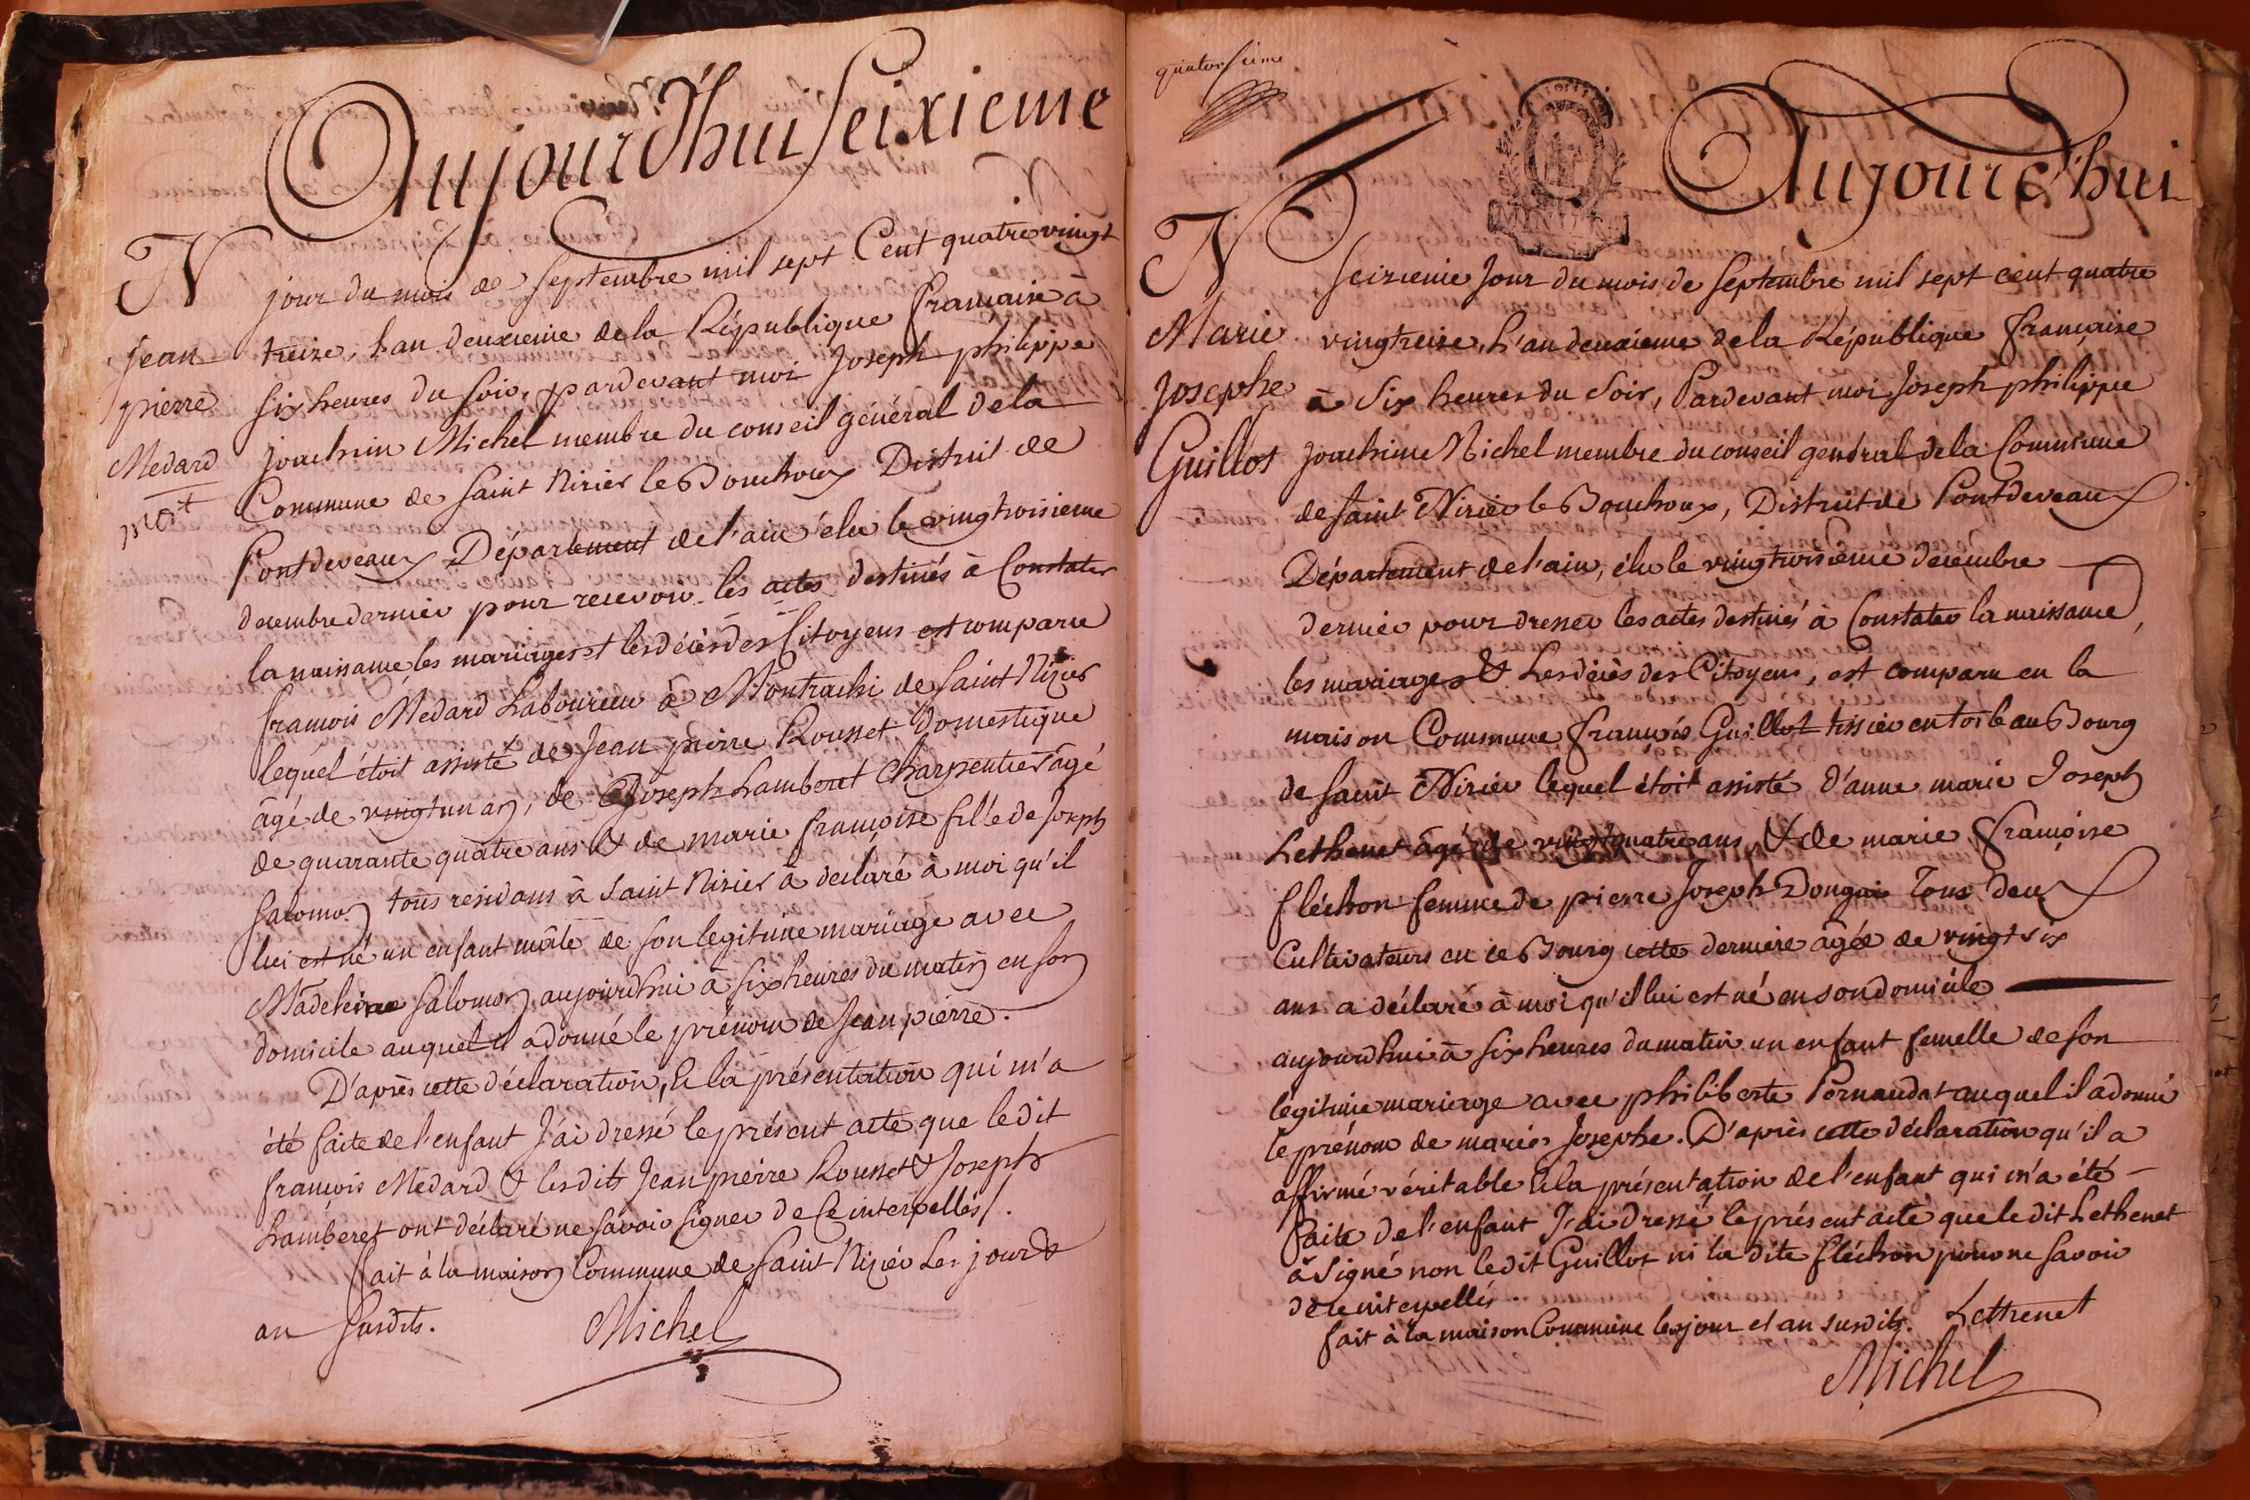 Aujourd'hui Seixieme
N
jour du mois de Septembre mil sept Cent quatre vingt
Jean
treize, l'an deuxieme de la République française à
pierre
Six heures du Soir, pardevant moi Joseph philippe
Medard
Joachim Michel membre du conseil général de la
mort
Commune de Saint Nizier le Bouchoux District de
Pontdeveaux Département de l'ain élu le vingtroisieme
decembre dernier pour recevoir les actes destinés à Constater
la naissance les mariages et les décès des Citoyens est comparu
françois Médard Laboureur à Montrachi de Saint Nizier
lequel étoit assisté de Jean pierre Rousset Domestique
âgé de vingt un ans, de Joseph Lamberet Charpentier âgé
de quarante quatre ans & de marie françoise fille de Joseph
Salomon tous residans à Saint Nizier a déclaré à moi qu'il
lui est né un enfant mâle de son legitime mariage avec
Madeleine Salomon aujourdhui à six heures du matin en son
domicile auquel il a donné le prénom de Jean pierre.
D'après cette déclaration, & la présentation qui m'a
été faite de l'enfant J'ai dressé le présent acte que ledit
françois Médard & lesdits Jean pierre Rousset & Joseph
Lamberet ont déclaré ne savoir signer de Ce interpellés/.
fait à la maison Commune de Saint Nizier Les jour &
an Susdits.
Michel
quatorsieme
Aujourd'hui
N
Seizieme Jour du mois de Septembre mil sept cent quatre
Marie
vingtreize, L'an deuxième de la République française
Josephe
à Six heures du Soir, Pardevant moi Joseph philippe
Guillot
Joachime Michel membre du conseil general de la Commune
de Saint Nizier le Bouchoux, District de Pontdeveaux
Département de l'ain, élu le vingtroisieme decembre
dernier pour dresser les actes destinés à Constater la naissance,
les mariages & Les décès des Citoyens, est comparu en la
maison Commune françois Guillot tissier en toile au Bourg
de Saint Nizier lequel étoit assisté d'anne marie Joseph
Lethenet âgé de vingtquatre ans, & de marie françoise
fléchon femme de pierre Joseph Dongai Tous deux
Cultivateurs en ce Bourg cette derniere âgée de vingt six
ans a déclaré à moi qu'il lui est né en son domicile
aujourdhui à six heures du matin un enfant femelle de son
legitime mariage avec philiberte Pornaudat auquel il a donné
le prénom de marie Josephe. D'après cette déclaration qu'il a
affirmé véritable & la présentation de l'enfant qui m'a été
faite de l'enfant J'ai dressé le présent acte que le dit Lethenet
à Signé non le dit Guillot ni la dite fléchon pour ne savoir
de ce interpellés
fait à la maison Commune les jour et an susdits. Lethenet
Michel